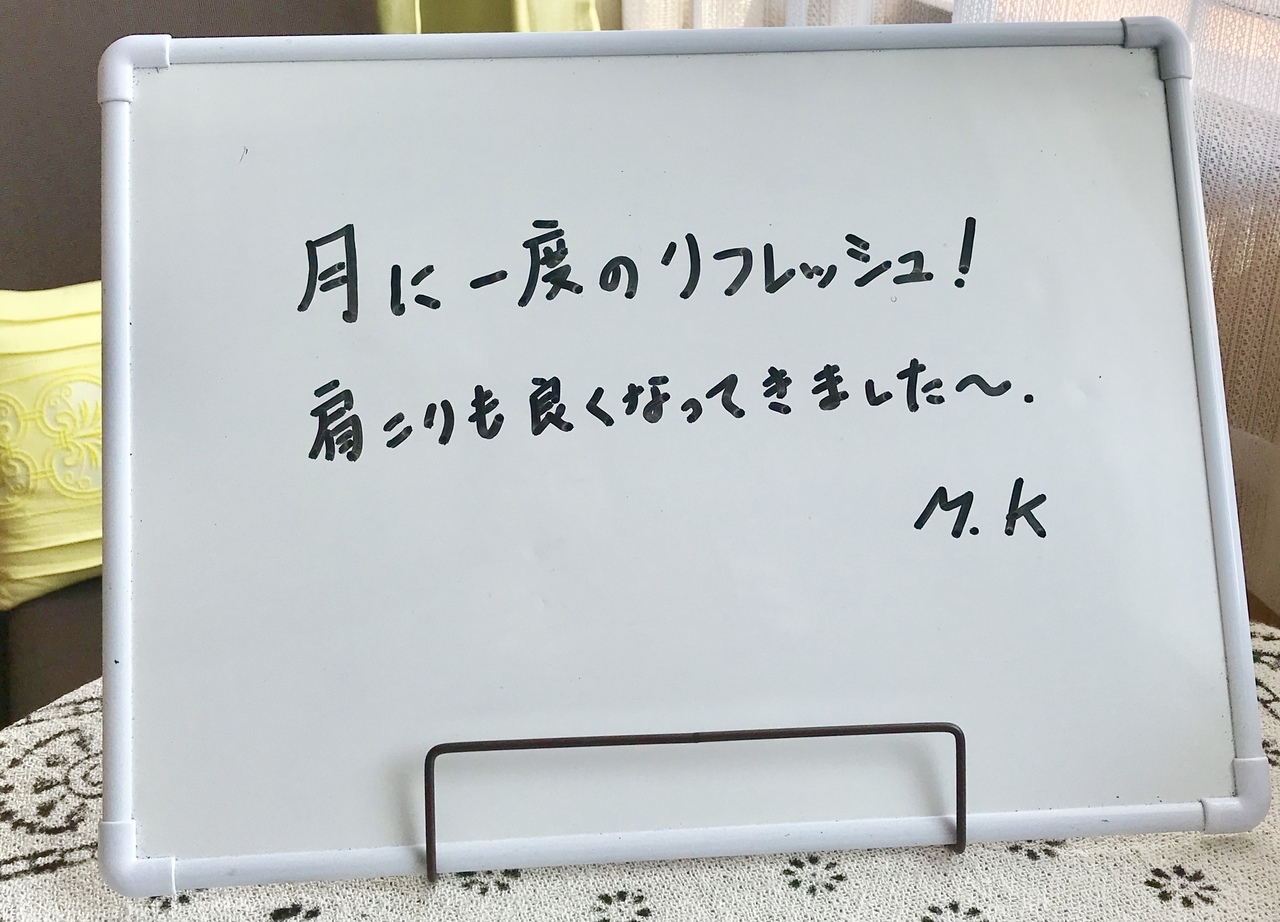 月に一度のリフレッシュ!
肩こりも良くなってきました〜.
M.K